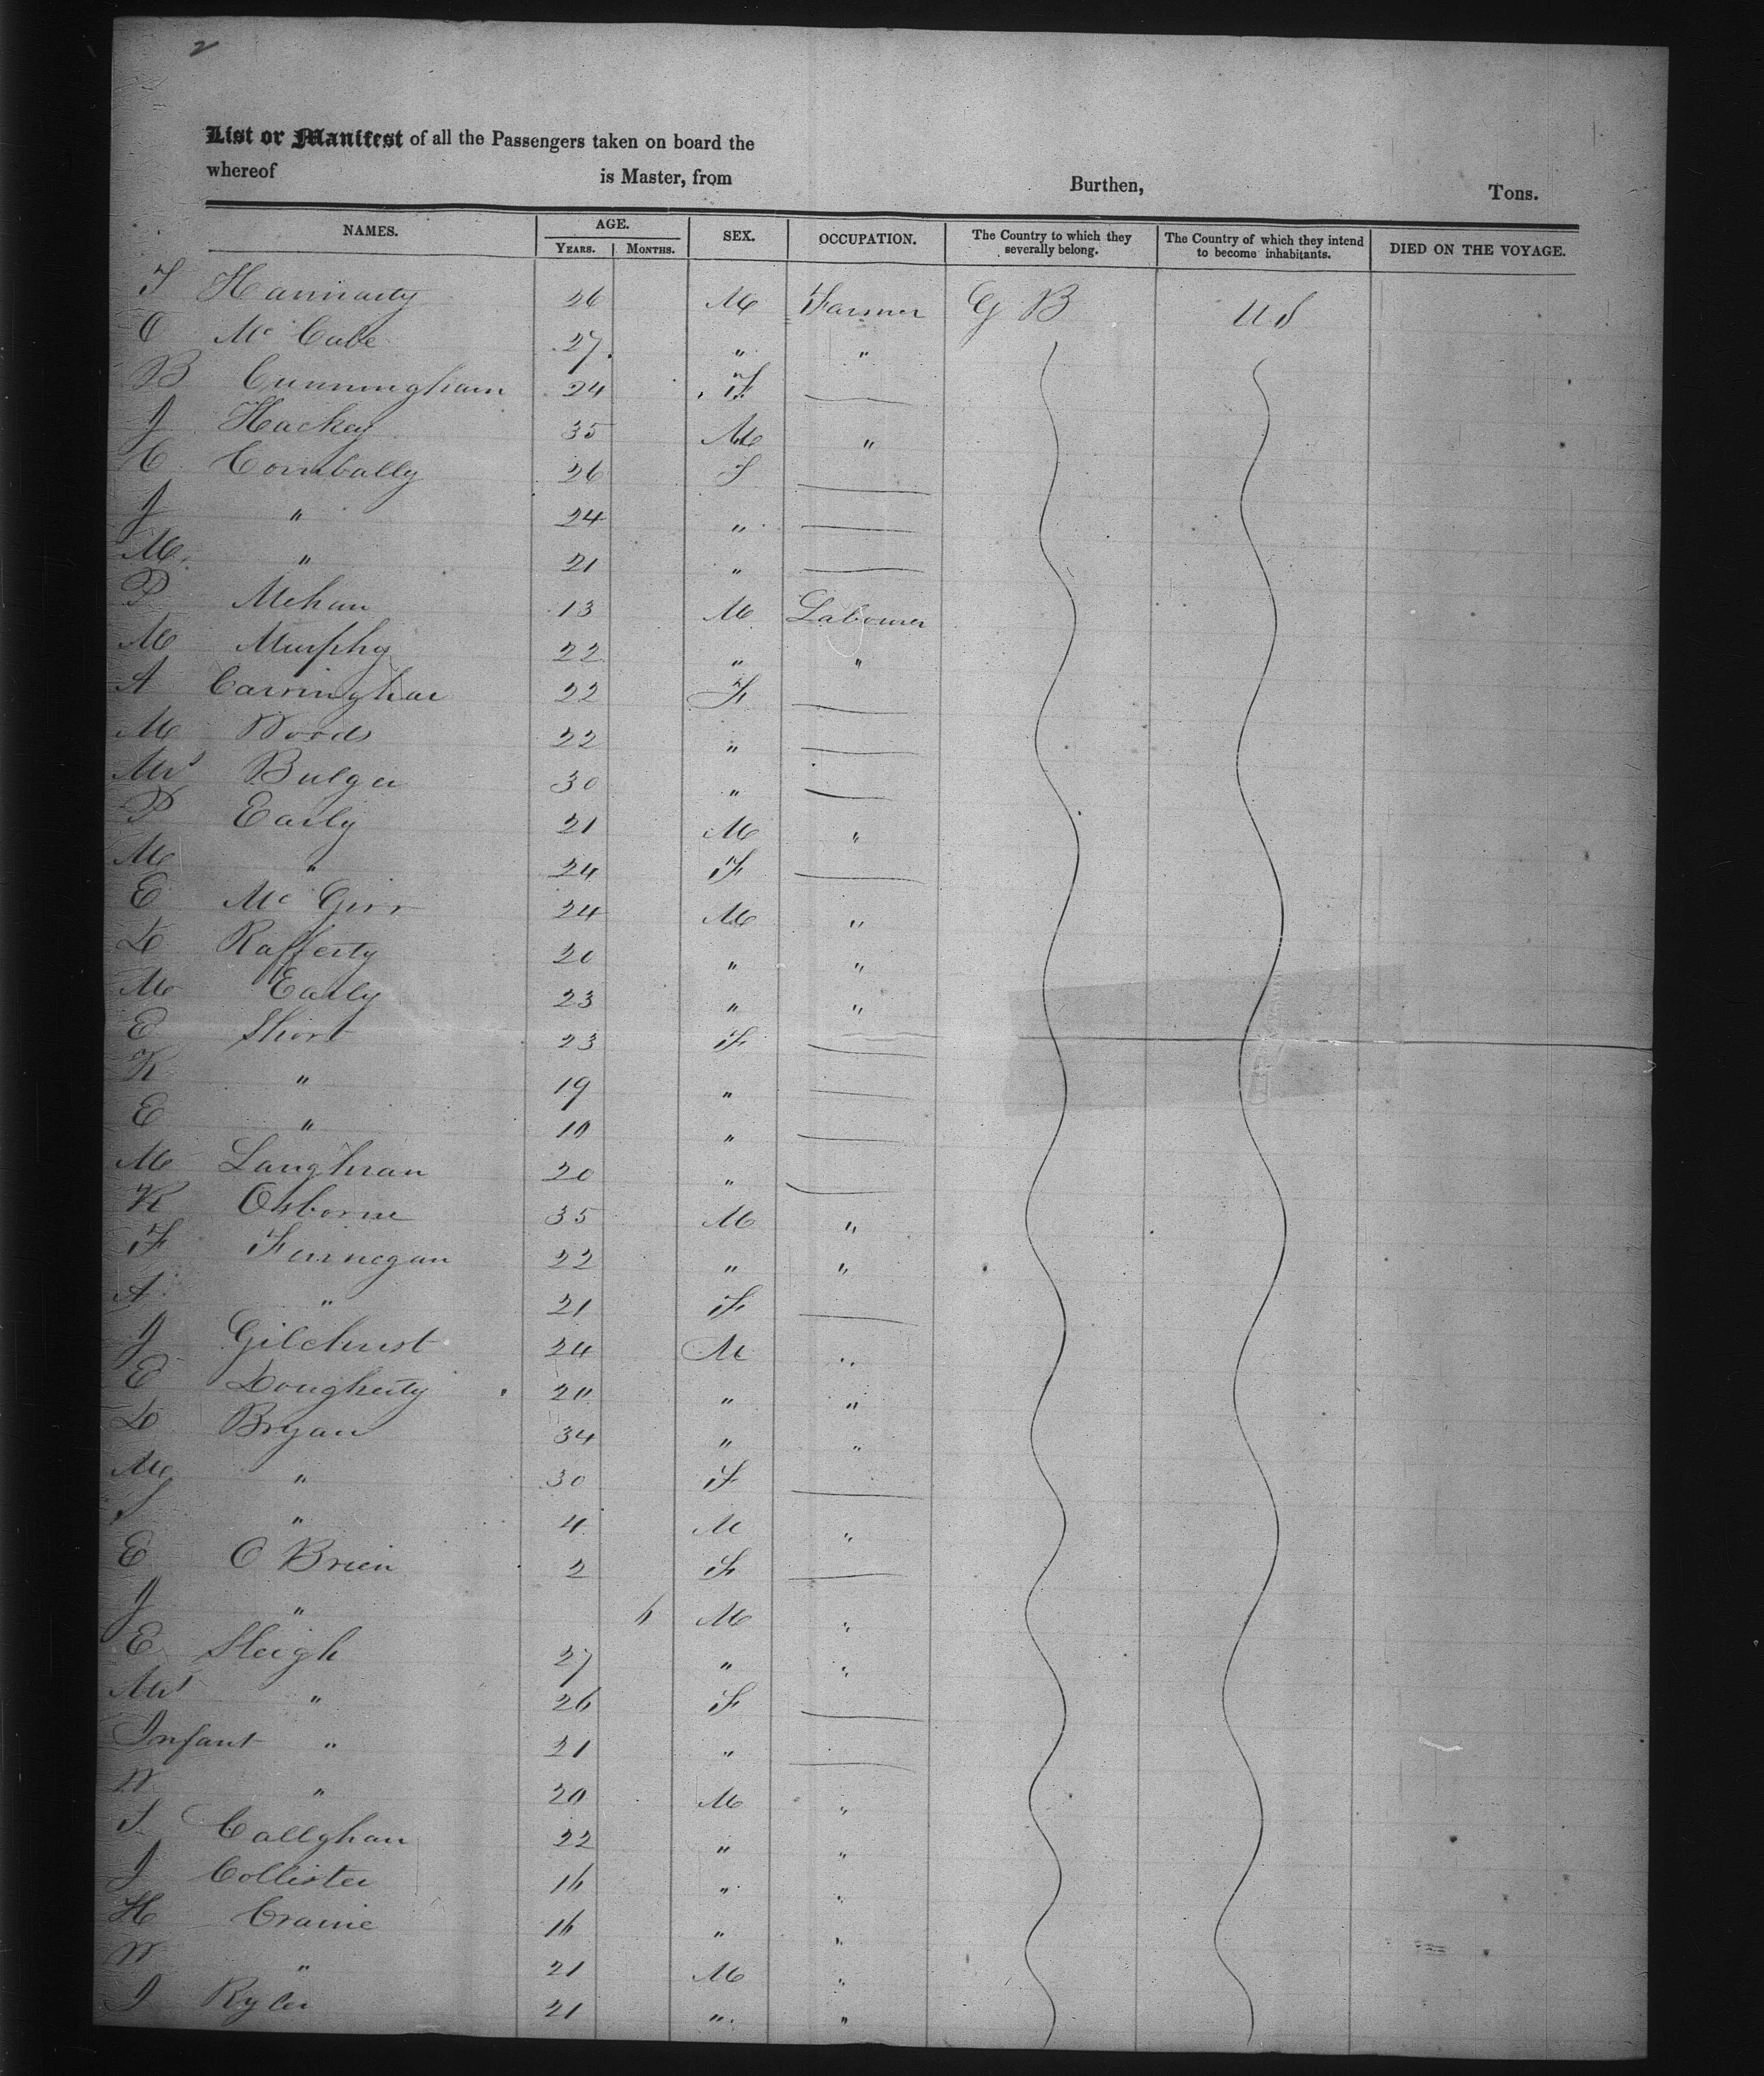 2
List or Manifest of all the Passengers taken on board the
whereof is Master, from Burthen, Tons.
NAMES. AGE. SEX. OCCUPATION. The Country to which they severally belong. The Country of which they intend to become inhabitants. DIED ON THE VOYAGE.
YEARS. MONTHS.
26 M Farmer G B U S
C McCabe 27 " "
B Cunningham 24 F
J Hackey 35 M "
C Connbally 26 F
J " 24 "
M " 21 "
P Mehan 13 M Labourer
M Murphy 22 " "
A 22 F
M Woods 22 "
Mrs Bulger 30 "
P Early 21 M "
M " 24 F
E McGirr 24 M "
D Rafferty 20 " "
M Early 23 " "
E Short 23 F
K " 19 "
E " "
M Laughran 20 "
R Osborne 35 M "
F Finnegan 22 " "
A " 21 F
J Gilchrist 24 M "
E Dougherty " "
D Bryan 34 " "
M " 30 F
S " 4 M "
E O Brien 2 F
J " M "
E Sleigh 27 " "
Mrs " 26 F
Infant " 21 "
W " 20 M "
S Callghan 22 " "
J Collister 16 " "
H Craine 16 " "
W " 21 M "
J Ryler 21 " "